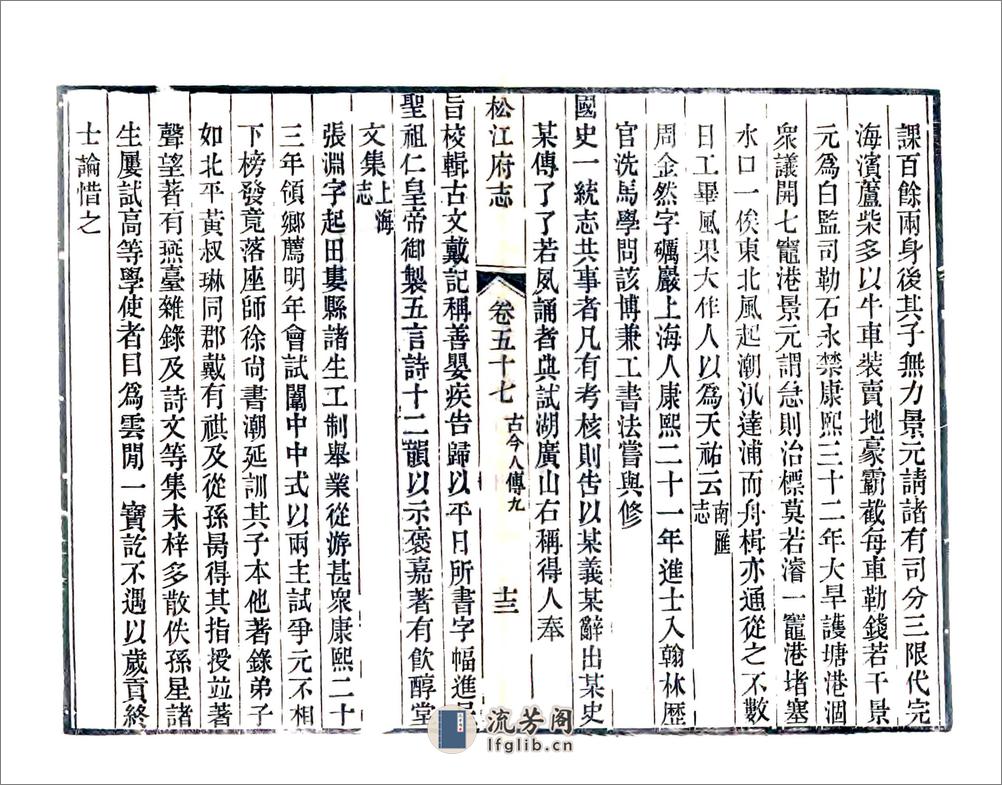 課百餘兩身後其子無力景元請諸有司分三限代完
海濱蘆柴多以牛車裝賣地豪霸截每車勒錢若干景
元爲白監司勒石永禁康熙三十二年大旱護塘港涸
衆議開七竈港景元謂惫則冶標莫若濬一竈港堵塞
水口一俟東北風起潮汛達浦而舟楫亦通從之不數
日工畢風果大作人以爲天祐云南滙志
周金然字礪巖上海人康熙二十一年進士入翰林歷
官洗馬學問該博兼工書法嘗與修
國史一統志共事者凡有考核則告以某義某辭出某史
某傳了了若夙誦者典試湖廣山右稱得人奉
松江府志
卷五十七
古今人傳九
十三
旨校輯古文戴記稱善嬰疾告歸以平日所書字幅進呈
聖祖仁皇帝御製五言詩十二韻以示褒嘉著有飮醇堂
文集上海志
張淵字起田婁縣諸生工制舉業從游甚衆康熙二十
三年領鄉薦明年會試闈中中式以兩主試爭元不相
下榜發竟落座師徐尙書潮延訓其子本他著錄弟子
如北平黃叔琳同郡戴有祺及從孫昺得其指授並著
聲望著有燕臺雜錄及詩文等集未梓多散佚孫星諸
生屢試高等學使者目爲雲閒一寶訖不遇以歲貢終
士論惜之
流芳阁
lfglib.cn